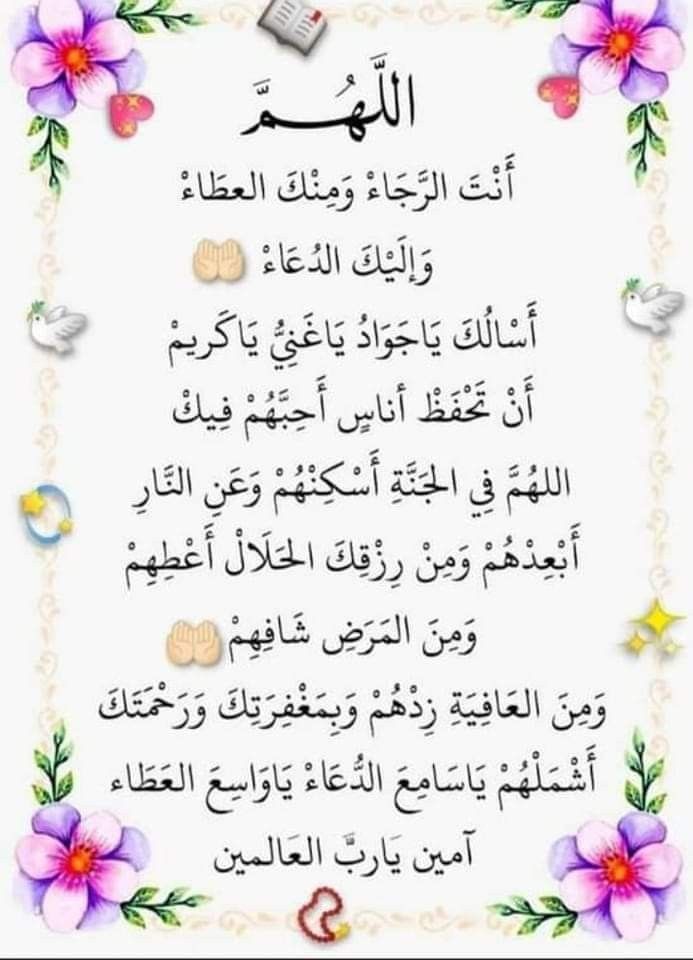 اللَّهُمَّ
أَنْتَ الرَّجَاءْ وَمِنْكَ العطَاءْ
وَإِلَيْكَ الدُعَاءْ
أَسْالُكَ يَاجَوَادُ يَاغَنِيُّ يَاكَريمْ
أَنْ تَحْفَظْ أناسٍ أَحِبَّهُمْ فِيكْ
اللهُمَّ فِي الجَنَّةِ أَسْكِنْهُمْ وَعَنِ النَّارِ
أَبْعِدْهُمْ وَمِنْ رِزْقِكَ الحَلَالْ أَعْطِهِمْ
وَمِنَ المَرَضِ شَافِهِمْ
وَمِنَ العَافِيَةِ زِدْهُمْ وَبِمَغْفِرَتِكَ وَرَحْمَتَكَ
أَشْمَلْهُمْ يَاسَامِعَ الدُّعَاءْ يَاوَاسِعَ العَطَاء
آمين يَاربَّ العَالمين